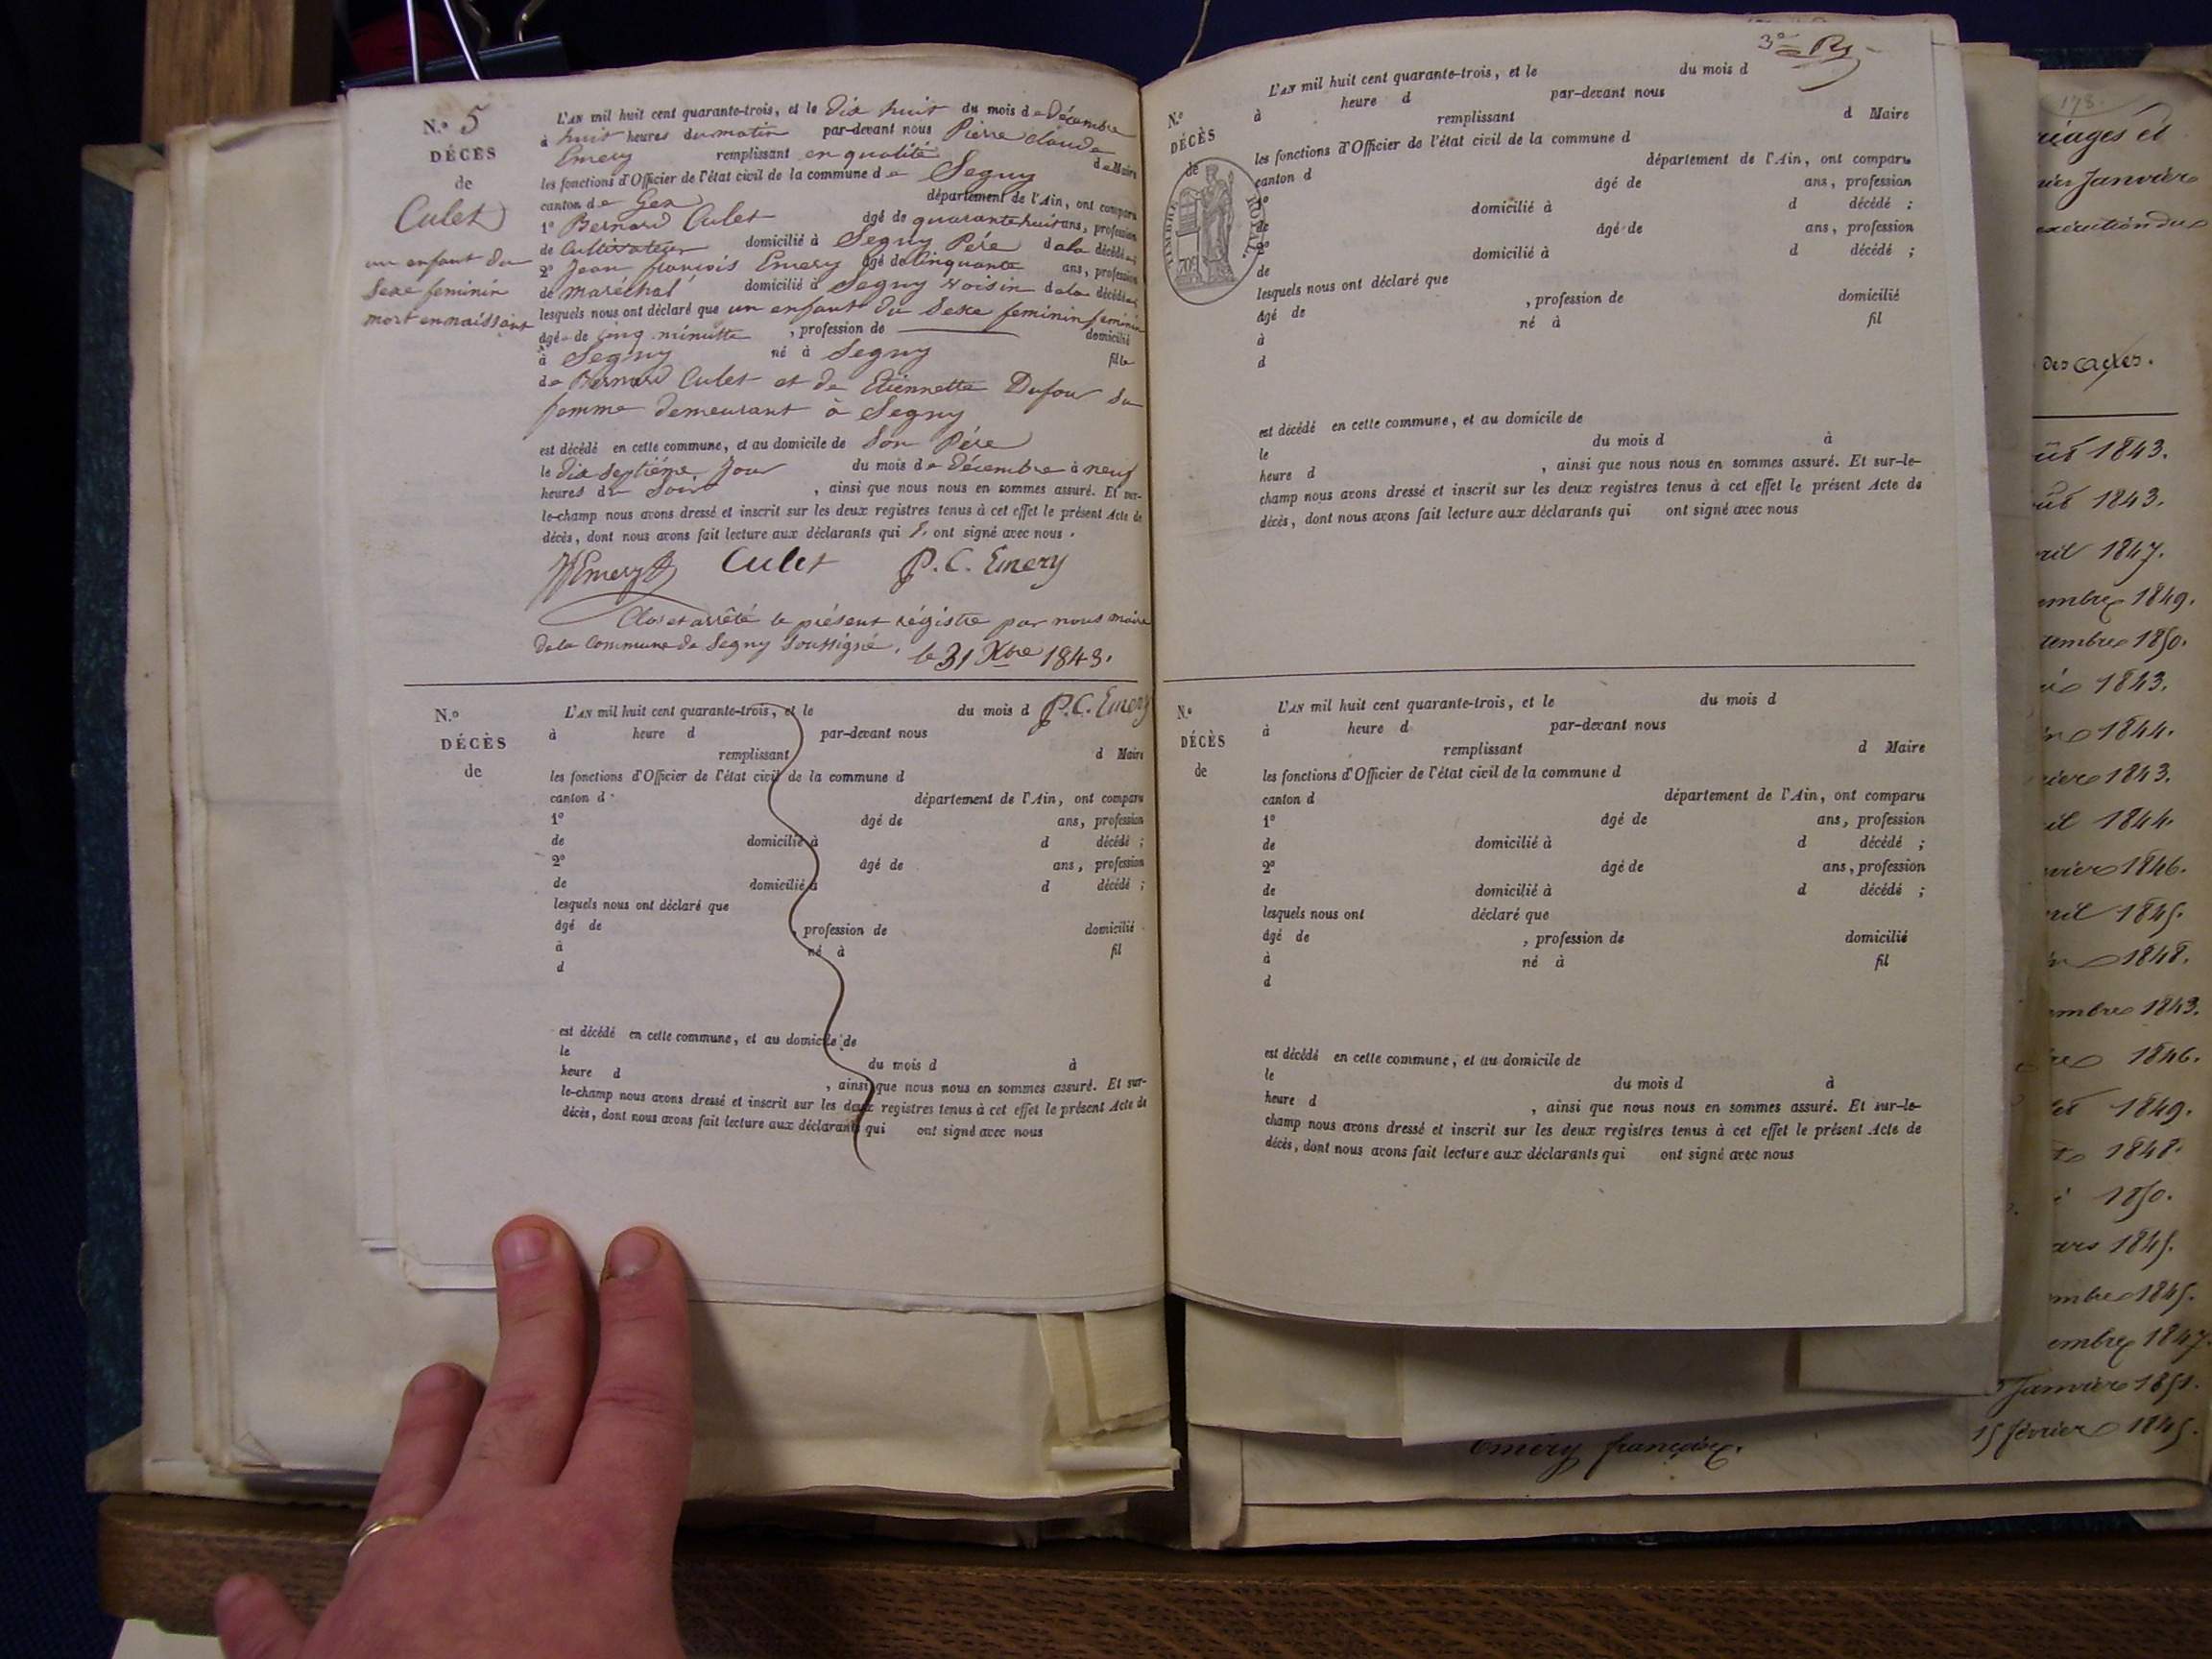 N.º 5
DÉCÈS
de
Culet
un enfant du
Sexe feminin
mort en naissant
L'AN mil huit cent quarante-trois, et le dix huit du mois de Décembre
à huit heures du matin par-devant nous Pierre Claude
Emery remplissant en qualité de Maire
les fonctions d'Officier de l'état civil de la commune de Segny
canton de Gex département de l'Ain, ont comparu
1º Bernard Culet âgé de quarante huit ans, profession
de Cultivateur domicilié à Segny Père de la décédée
2º Jean françois Emery âgé de Cinquante ans, profession
de maréchal domicilié à Segny voisin de la décédée
lesquels nous ont déclaré que un enfant du Sexe feminin feminin
âgé de cinq minutte, profession de domicilié
à Segny né à Segny fille
de Bernard Culet et de Etiennette Dufour sa
femme demeurant à Segny
est décédé en cette commune, et au domicile de Son Père
le dix septième Jour du mois de Décembre à neuf
heures du Soir, ainsi que nous nous en sommes assuré. Et sur-
le-champ nous avons dressé et inscrit sur les deux registres tenus à cet effet le présent Acte de
décès, dont nous avons fait lecture aux déclarants qui ont signé avec nous.
Emery Culet P. C. Emery
Clos et arrêté le présent régistre par nous maire
de la Commune de Segny Soussigné, le 31 Xbre 1843.
P. C. Emery
N.º
DÉCÈS
de
L'AN mil huit cent quarante-trois, et le du mois d
à heure d par-devant nous
remplissant d Maire
les fonctions d'Officier de l'état civil de la commune d
canton d département de l'Ain, ont comparu
1º âgé de ans, profession
de domicilié à d décédé ;
2º âgé de ans, profession
de domicilié à d décédé ;
lesquels nous ont déclaré que
âgé de , profession de domicilié
à né à fil
d
est décédé en cette commune, et au domicile de
le du mois d à
heure d , ainsi que nous nous en sommes assuré. Et sur-
le-champ nous avons dressé et inscrit sur les deux registres tenus à cet effet le présent Acte de
décès, dont nous avons fait lecture aux déclarants qui ont signé avec nous
3e Rg
N.º
DÉCÈS
de
TIMBRE ROYAL
L'AN mil huit cent quarante-trois, et le du mois d
à heure d par-devant nous
remplissant d Maire
les fonctions d'Officier de l'état civil de la commune d
canton d département de l'Ain, ont comparu
1º âgé de ans, profession
de domicilié à d décédé ;
2º âgé de ans, profession
de domicilié à d décédé ;
lesquels nous ont déclaré que
âgé de , profession de domicilié
à né à fil
d
est décédé en cette commune, et au domicile de
le du mois d à
heure d , ainsi que nous nous en sommes assuré. Et sur-le-
champ nous avons dressé et inscrit sur les deux registres tenus à cet effet le présent Acte de
décès, dont nous avons fait lecture aux déclarants qui ont signé avec nous
N.º
DÉCÈS
de
L'AN mil huit cent quarante-trois, et le du mois d
à heure d par-devant nous
remplissant d Maire
les fonctions d'Officier de l'état civil de la commune d
canton d département de l'Ain, ont comparu
1º âgé de ans, profession
de domicilié à d décédé ;
2º âgé de ans, profession
de domicilié à d décédé ;
lesquels nous ont déclaré que
âgé de , profession de domicilié
à né à fil
d
est décédé en cette commune, et au domicile de
le du mois d à
heure d , ainsi que nous nous en sommes assuré. Et sur-le-
champ nous avons dressé et inscrit sur les deux registres tenus à cet effet le présent Acte de
décès, dont nous avons fait lecture aux déclarants qui ont signé avec nous
178.
riages et
vier Janvier
exécution du
des actes.
1843.
1843.
1847.
embre 1849.
tembre 1850.
1843.
1844.
1843.
1844.
1846.
1845.
1848.
embre 1843.
1846.
1849.
1848.
1850.
1845.
embre 1845.
embre 1847.
Janvier 1851.
Emery françoise. 15 février 1845.